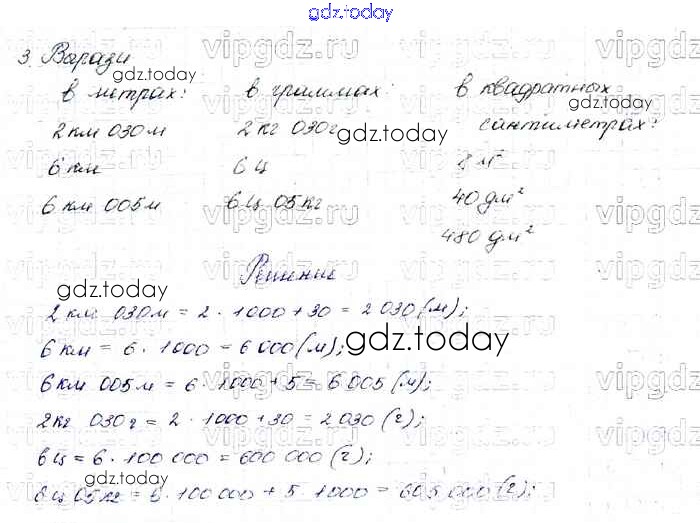 gdz.today
3. Вырази
в метрах: в граммах: в квадратных сантиметрах:
2 км 030 м 2 кг 030 г
6 км 6 ц 8 м²
6 км 005 м 6 ц 05 кг 40 дм²
480 дм²
Решение
2 км 030 м = 2 · 1000 + 30 = 2 030 (м);
6 км = 6 · 1000 = 6 000 (м);
6 км 005 м = 6 · 1000 + 5 = 6 005 (м);
2 кг 030 г = 2 · 1000 + 30 = 2 030 (г);
6 ц = 6 · 100 000 = 600 000 (г);
6 ц 05 кг = 6 · 100 000 + 5 · 1000 = 605 000 (г);